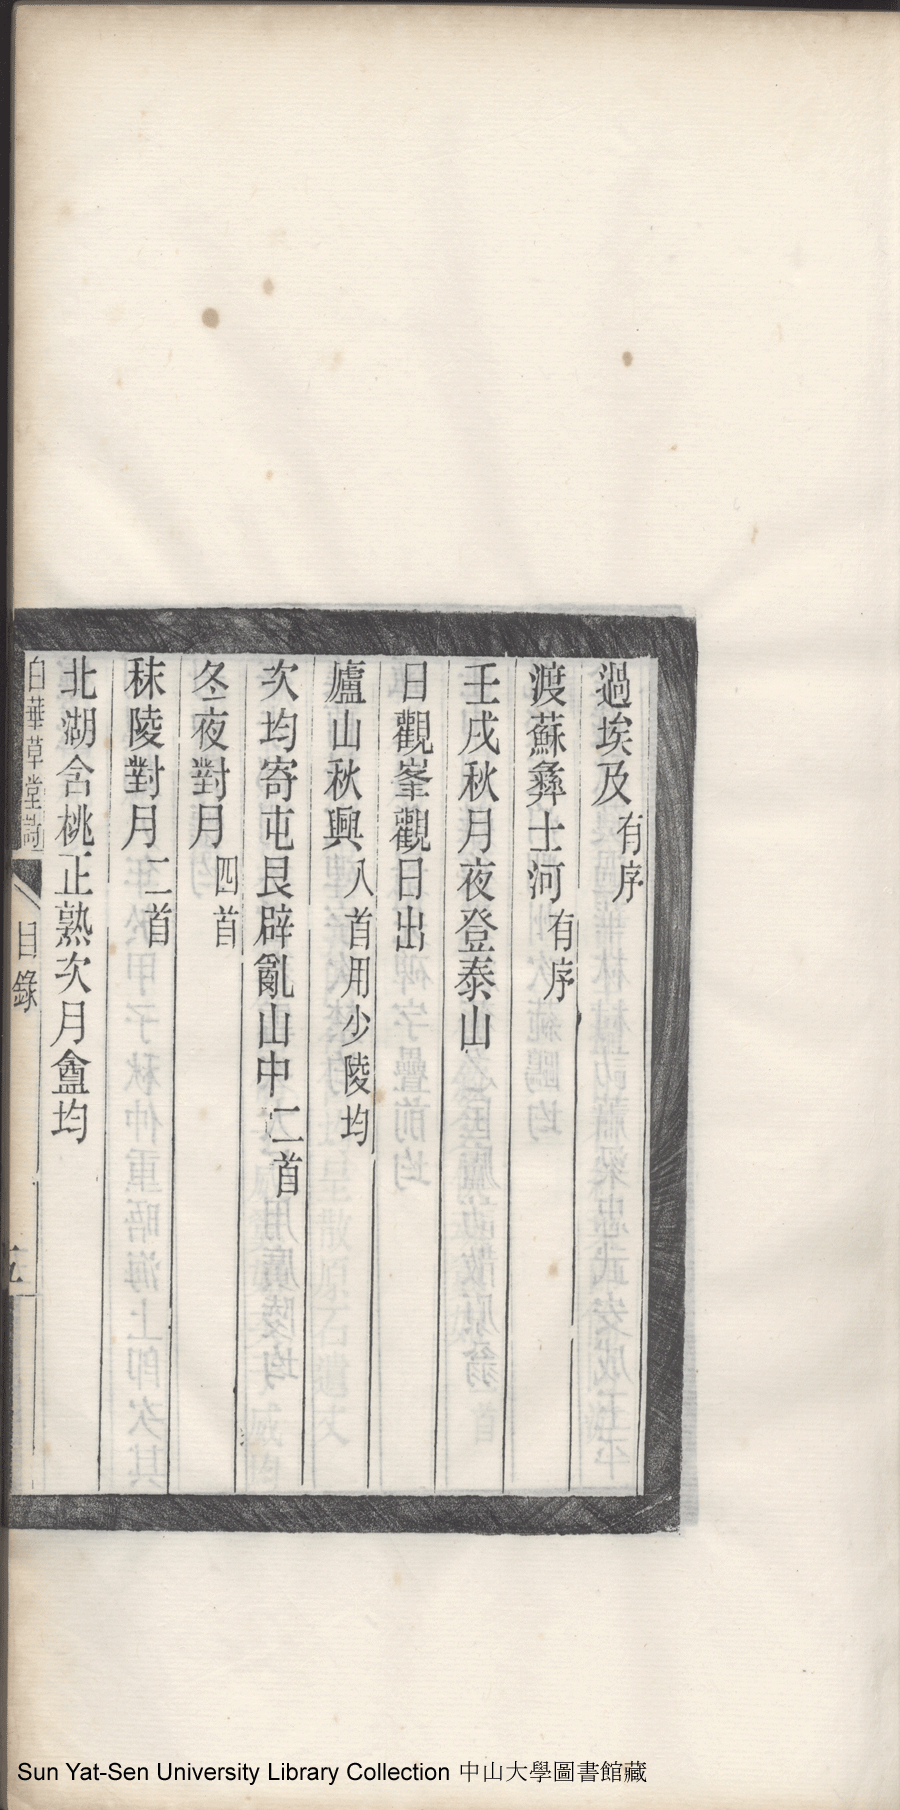 過埃及有序
渡蘇彝士河有序
壬戌秋月夜登泰山
日觀峯觀日出
廬山秋興八首用少陵均
次均寄屯艮辟亂山中二首
冬夜對月四首
秣陵對月二首
北湖含桃正熟次月盦均
白華草堂詩 目錄 五
Sun Yat-Sen University Library Collection 中山大學圖書館藏